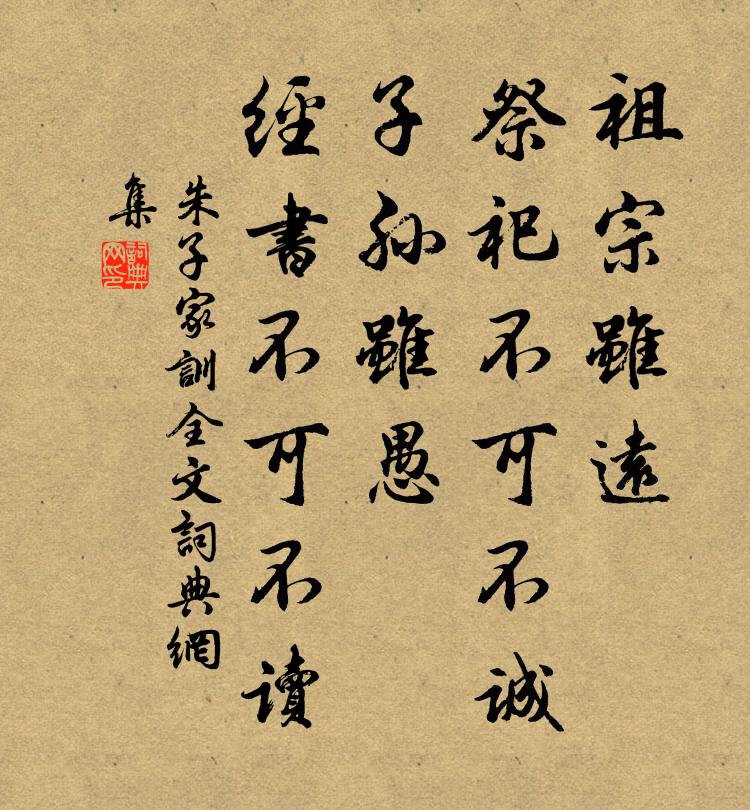 祖宗雖遠
祭祀不可不誠
子孫雖愚
經書不可不讀
朱子家訓全文詞典網
集
詞典
网印